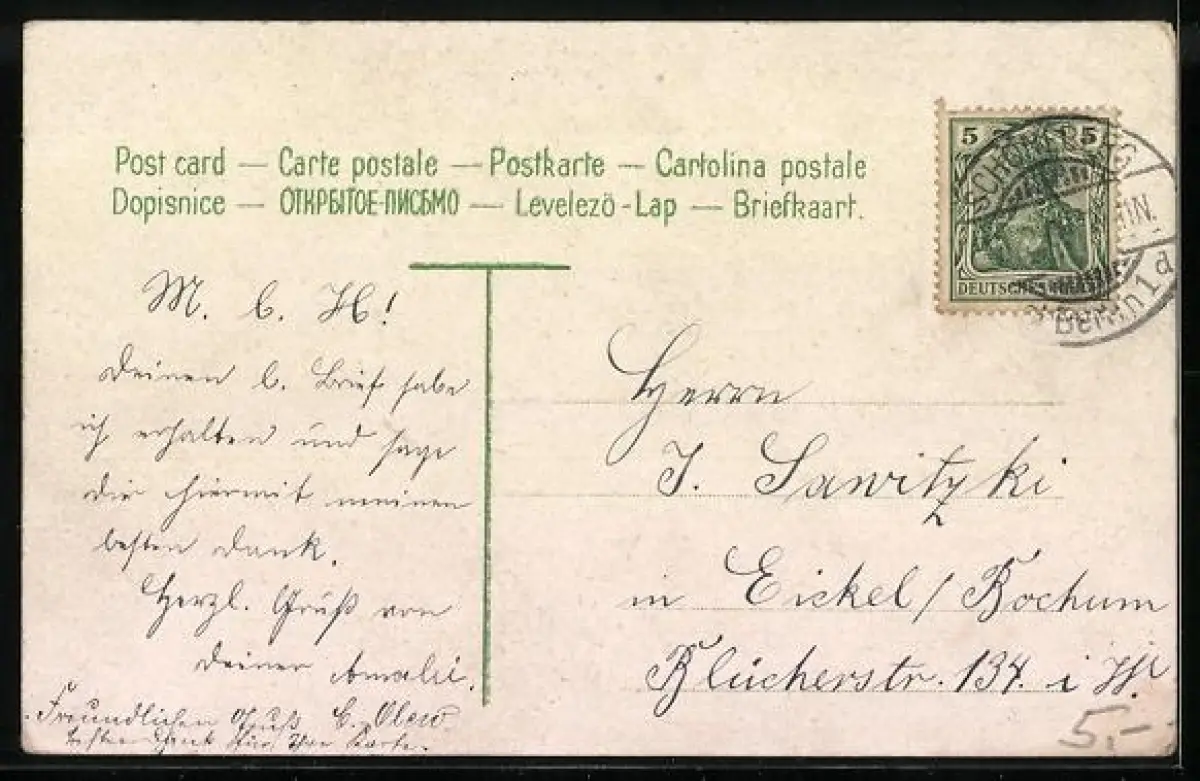 Post card — Carte postale — Postkarte — Cartolina postale
Dopisnice — ОТКРЫТОЕ-ПИСЬМО — Levelező-Lap — Briefkaart.
5 5
SCHÖNEBERG
Berlin 1 d
DEUTSCHES REICH
M. l. H!
Deinen l. Brief habe
ich erhalten und sage
dir hiermit meinen
besten Dank.
Herzl. Gruß von
Deiner
Freundlichen Gruß
besten Dank für Ihre Karte.
Herrn
J. Sawitzki
in Eickel / Bochum
Blücherstr. 134. i/W
5.-